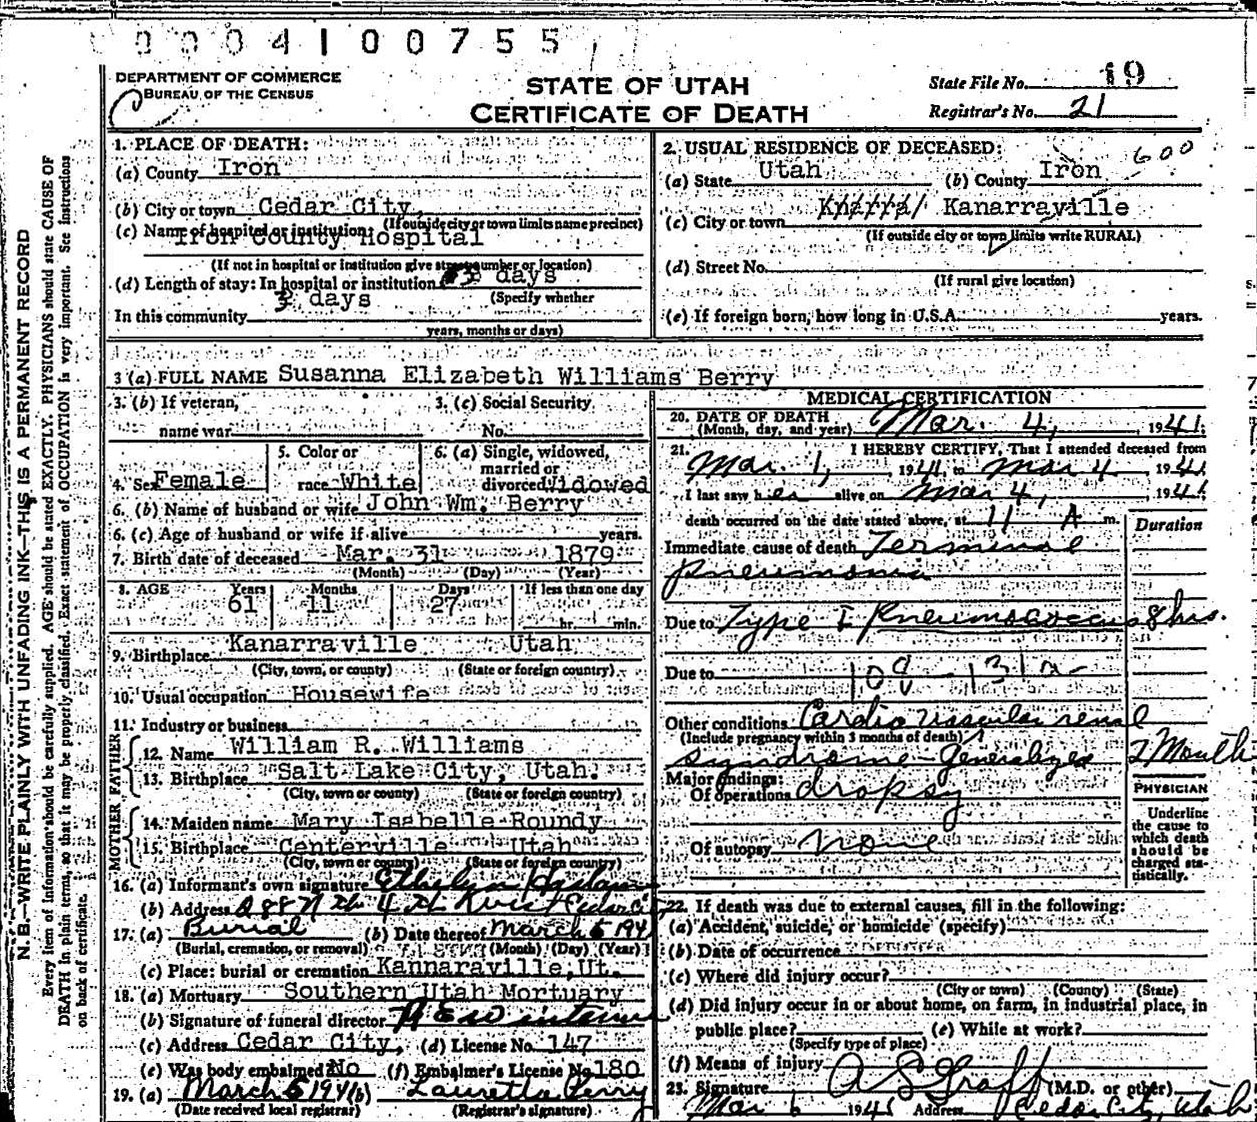 0004100755
DEPARTMENT OF COMMERCE
BUREAU OF THE CENSUS
STATE OF UTAH
CERTIFICATE OF DEATH
State File No. 19
Registrar's No. 21
N.B.—WRITE PLAINLY WITH UNFADING INK—THIS IS A PERMANENT RECORD
Every item of information should be carefully supplied. AGE should be stated EXACTLY. PHYSICIANS should state CAUSE OF
DEATH in plain terms, so that it may be properly classified. Exact statement of OCCUPATION is very important. See instructions
on back of certificate.
1. PLACE OF DEATH:
(a) County Iron
(b) City or town Cedar City,
(If outside city or town limits name precinct)
(c) Name of hospital or institution:
Iron County Hospital
(If not in hospital or institution give street number or location)
(d) Length of stay: In hospital or institution 3 days
(Specify whether
In this community 3 days
years, months or days)
2. USUAL RESIDENCE OF DECEASED: 600
(a) State Utah (b) County Iron
(c) City or town Kanarraville
(If outside city or town limits write RURAL)
(d) Street No.
(If rural give location)
(e) If foreign born, how long in U.S.A. years.
3 (a) FULL NAME Susanna Elizabeth Williams Berry
3. (b) If veteran,
name war
3. (c) Social Security
No.
4. Sex Female
5. Color or
race White
6. (a) Single, widowed,
married or
divorced Widowed
6. (b) Name of husband or wife John Wm. Berry
6. (c) Age of husband or wife if alive years.
7. Birth date of deceased Mar. 31 1879
(Month) (Day) (Year)
8. AGE Years Months Days If less than one day
61 11 27 hr. min.
9. Birthplace Kanarraville Utah
(City, town, or county) (State or foreign country)
10. Usual occupation Housewife
11. Industry or business
FATHER
12. Name William R. Williams
13. Birthplace Salt Lake City, Utah.
(City, town or county) (State or foreign country)
MOTHER
14. Maiden name Mary Isabelle Roundy
15. Birthplace Centerville Utah
(City, town or county) (State or foreign country)
16. (a) Informant's own signature Ethelyn
(b) Address 288 4th West Cedar
17. (a) Burial (b) Date thereof March 5 194
(Burial, cremation, or removal) (Month) (Day) (Year)
(c) Place: burial or cremation Kannaraville, Ut.
18. (a) Mortuary Southern Utah Mortuary
(b) Signature of funeral director
(c) Address Cedar City, (d) License No. 147
(e) Was body embalmed? No (f) Embalmer's License No. 180
19. (a) March 5 1941 (b) Lauretta Perry
(Date received local registrar) (Registrar's signature)
MEDICAL CERTIFICATION
20. DATE OF DEATH
(Month, day, and year) Mar. 4, 1941
21. I HEREBY CERTIFY, That I attended deceased from
Mar. 1, 1941 to Mar 4 1941
I last saw her alive on Mar 4, 1941
death occurred on the date stated above, at 11 A m.
Duration
Immediate cause of death Terminal
pneumonia
Due to Type I Pneumococcus 8 hrs.
Due to 108 - 131a-
Other conditions Cardio vascular renal
(Include pregnancy within 3 months of death)
syndrome - Generalized 2 Month
Major findings:
Of operations dropsy
Of autopsy None
PHYSICIAN
Underline
the cause to
which death
should be
charged sta-
tistically.
22. If death was due to external causes, fill in the following:
(a) Accident, suicide, or homicide (specify)
(b) Date of occurrence
(c) Where did injury occur?
(City or town) (County) (State)
(d) Did injury occur in or about home, on farm, in industrial place, in
public place? (e) While at work?
(Specify type of place)
(f) Means of injury
23. Signature A S Graff (M.D. or other)
Mar 6 1941 Address Cedar City, Utah